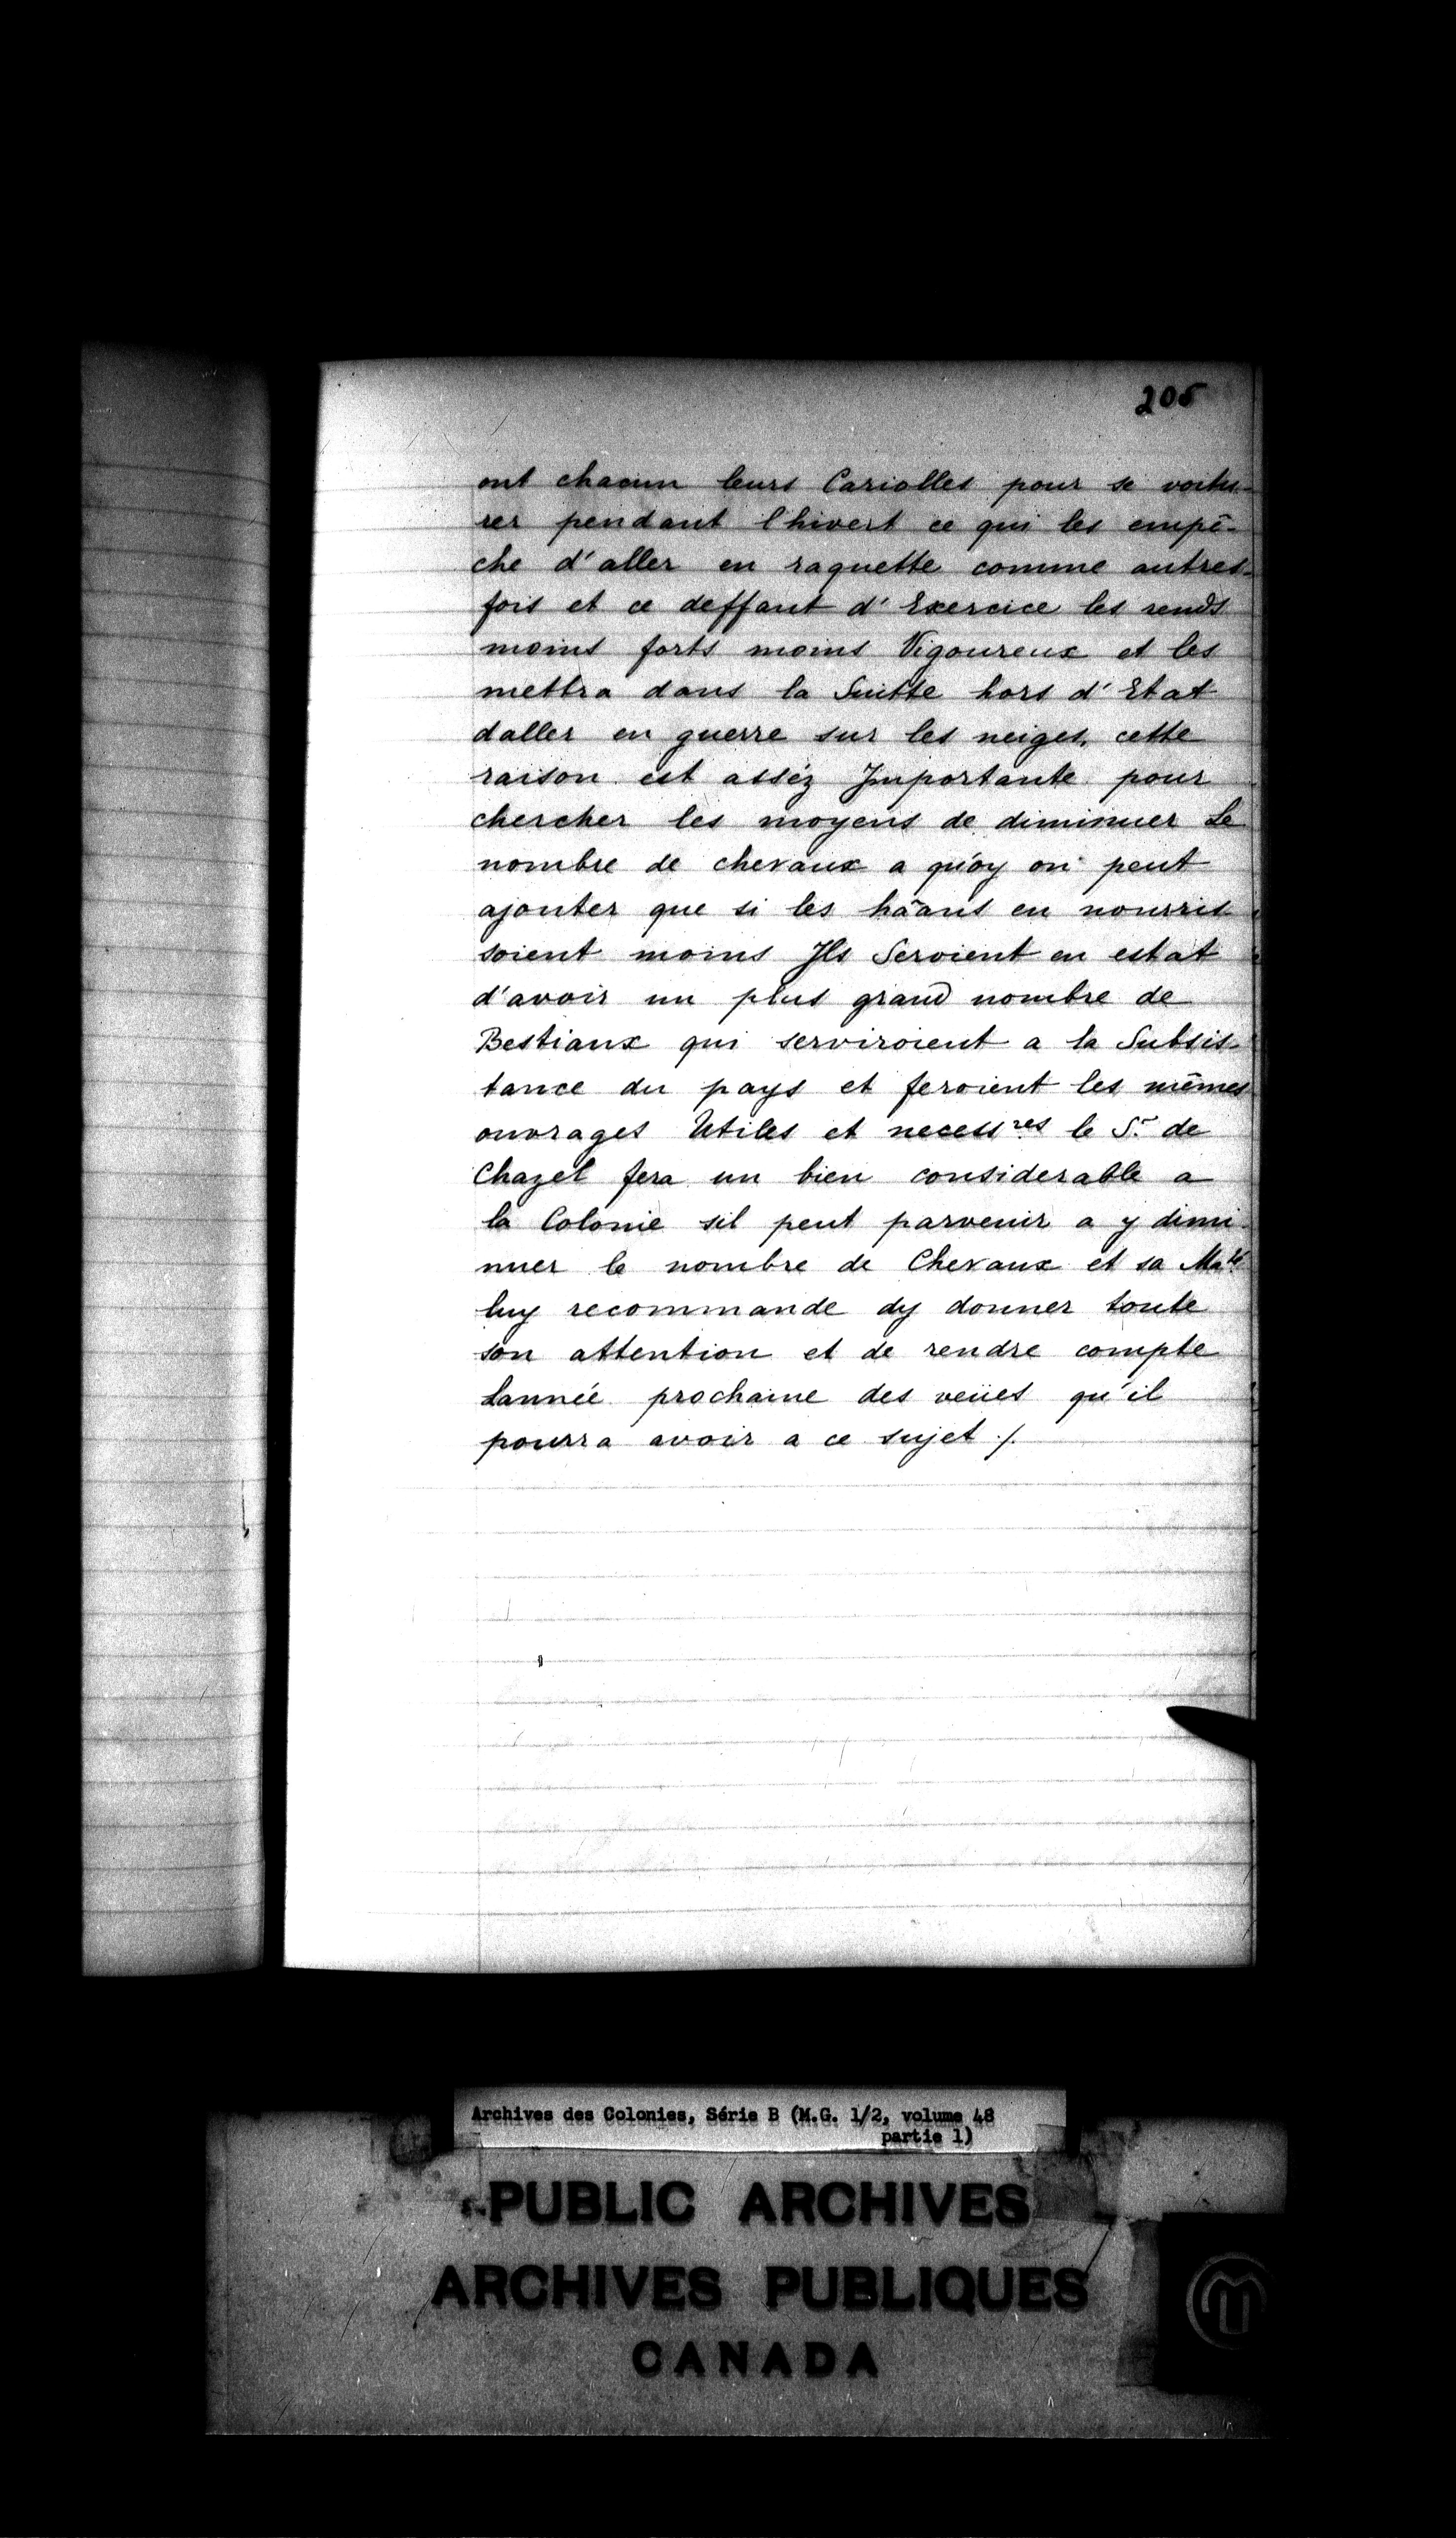 205
ont chacun leurs Cariolles pour se voitu-
rer pendant l'hivert ce qui les empê-
che d'aller en raquette comme autres-
fois et ce deffaut d'Exercice les rends
moins forts moins Vigoureux et les
mettra dans la Suitte hors d'Etat
daller en guerre sur les neiges, cette
raison est asséz Importante pour
chercher les moyens de diminuer Le
nombre de chevaux a quoy on peut
ajouter que si les hãans en nourris-
soient moins Ils Seroient en estat
d'avoir un plus grand nombre de
Bestiaux qui serviroient a la Subsis-
tance du pays et feroient les mêmes
ouvrages Utiles et necessres le Sr. de
Chazel fera un bien considerable a
la Colonie sil peut parvenir a y dimi-
nuer le nombre de Chevaux et sa Maté
luy recommande dy donner toute
son attention et de rendre compte
Lannée prochaine des veües qu'il
pourra avoir a ce sujet ./.
Archives des Colonies, Série B (M.G. 1/2, volume 48
partie 1)
PUBLIC ARCHIVES
ARCHIVES PUBLIQUES
CANADA